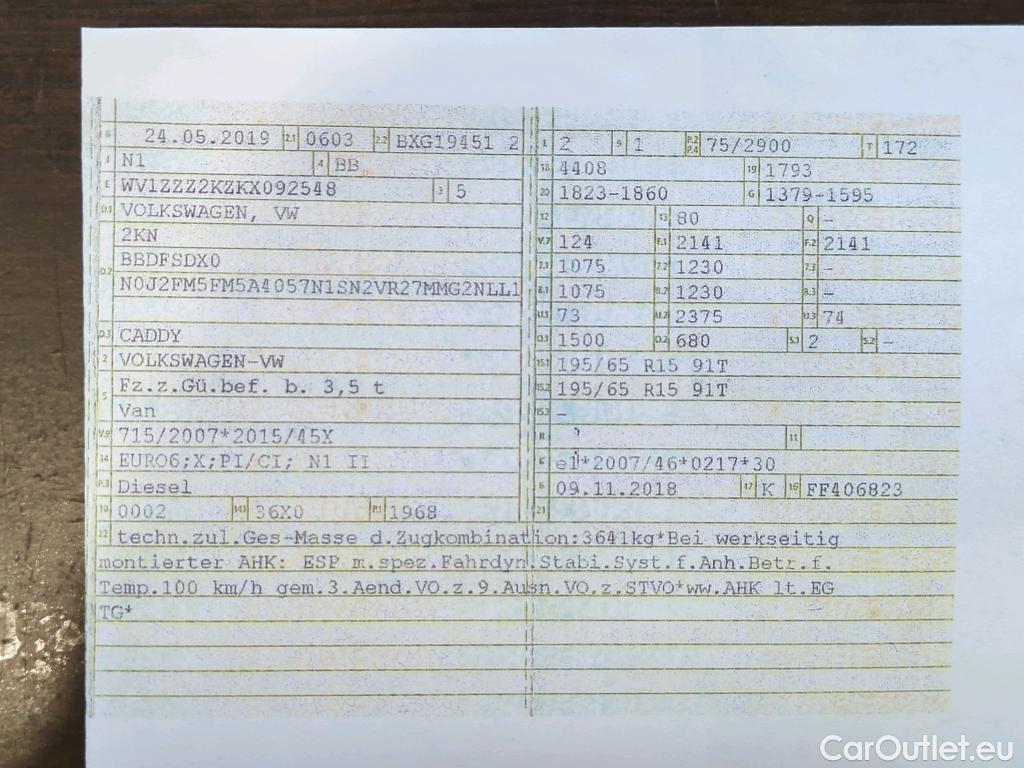 B 24.05.2019 2.1 0603 2.2 BXG19451 2
J N1 4 BB
E WV1ZZZ2KZKX092548 3 5
D.1 VOLKSWAGEN, VW
2KN
D.2 BBDFSDX0
N0J2FM5FM5A4057N1SN2VR27MMG2NLL1
D.3 CADDY
2 VOLKSWAGEN-VW
5 Fz.z.Gü.bef. b. 3,5 t
Van
V.9 715/2007*2015/45X
14 EURO6;X;PI/CI; N1 II
P.3 Diesel
10 0002 14.1 36X0 P.1 1968
L 2 9 1 P.2 P.4 75/2900 T 172
18 4408 19 1793
20 1823-1860 G 1379-1595
12 13 80 Q -
V.7 124 F.1 2141 F.2 2141
7.1 1075 7.2 1230 7.3 -
8.1 1075 8.2 1230 8.3 -
U.1 73 U.2 2375 U.3 74
O.1 1500 O.2 680 S.1 2 S.2 -
15.1 195/65 R15 91T
15.2 195/65 R15 91T
15.3 -
R 11
K e1*2007/46*0217*30
6 09.11.2018 17 K 16 FF406823
21
22 techn.zul.Ges-Masse d.Zugkombination:3641kg*Bei werkseitig
montierter AHK: ESP m.spez.Fahrdyn.Stabi.Syst.f.Anh.Betr.f.
Temp.100 km/h gem.3.Aend.VO.z.9.Ausn.VO.z.STVO*ww.AHK lt.EG
TG*
CarOutlet.eu